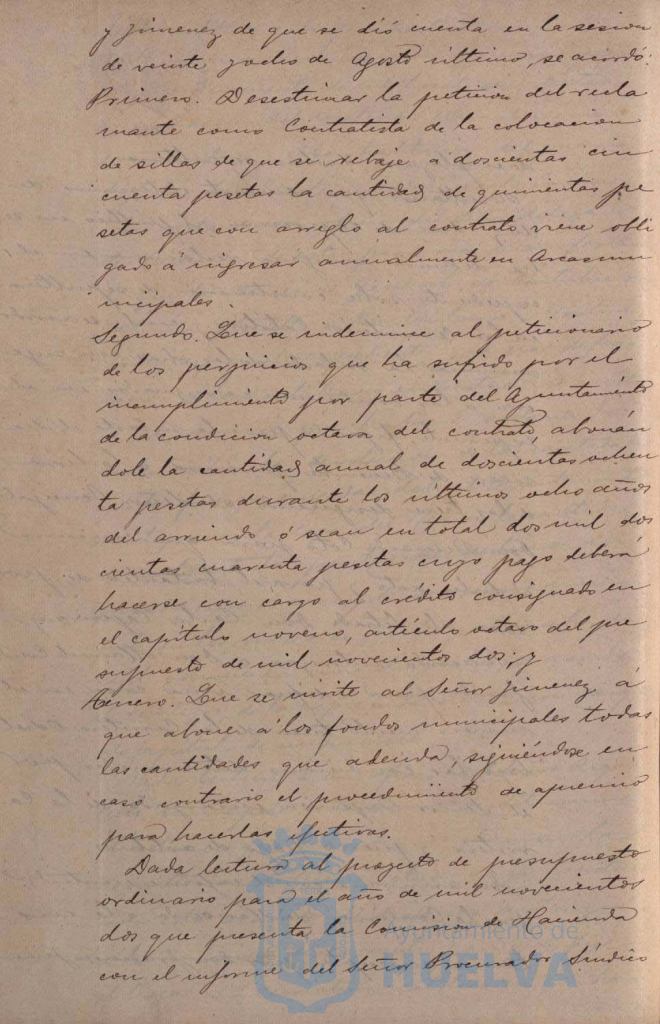 y Jimenez de que se dió cuenta en la sesion
de veinte y ocho de Agosto último, se acordó:
Primero. Desestimar la peticion del recla
mante como Contratista de la colocacion
de sillas de que se rebaje á doscientas cin
cuenta pesetas la cantidad de quinientas pe
setas que con arreglo al contrato viene obli
gado á ingresar anualmente en Arcas mu
nicipales.
Segundo. Que se indemnice al peticionario
de los perjuicios que ha sufrido por el
incumplimiento por parte del Ayuntamiento
de la condicion octava del contrato, abonán
dole la cantidad anual de doscientas ochen
ta pesetas durante los últimos ocho años
del arriendo ó sean en total dos mil dos
cientas cuarenta pesetas cuyo pago deberá
hacerse con cargo al crédito consignado en
el capítulo noveno, artículo octavo del pre
supuesto de mil novecientos dos; y
Tercero. Que se invite al Señor Jimenez á
que abone á los fondos municipales todas
las cantidades que adeuda, siguiéndose en
caso contrario el procedimiento de apremio
para hacerlas efectivas.
Dada lectura al proyecto de presupuesto
ordinario para el año de mil novecientos
dos que presenta la Comision de Hacienda
con el informe del Señor Procurador Síndico
Ayuntamiento de
HUELVA